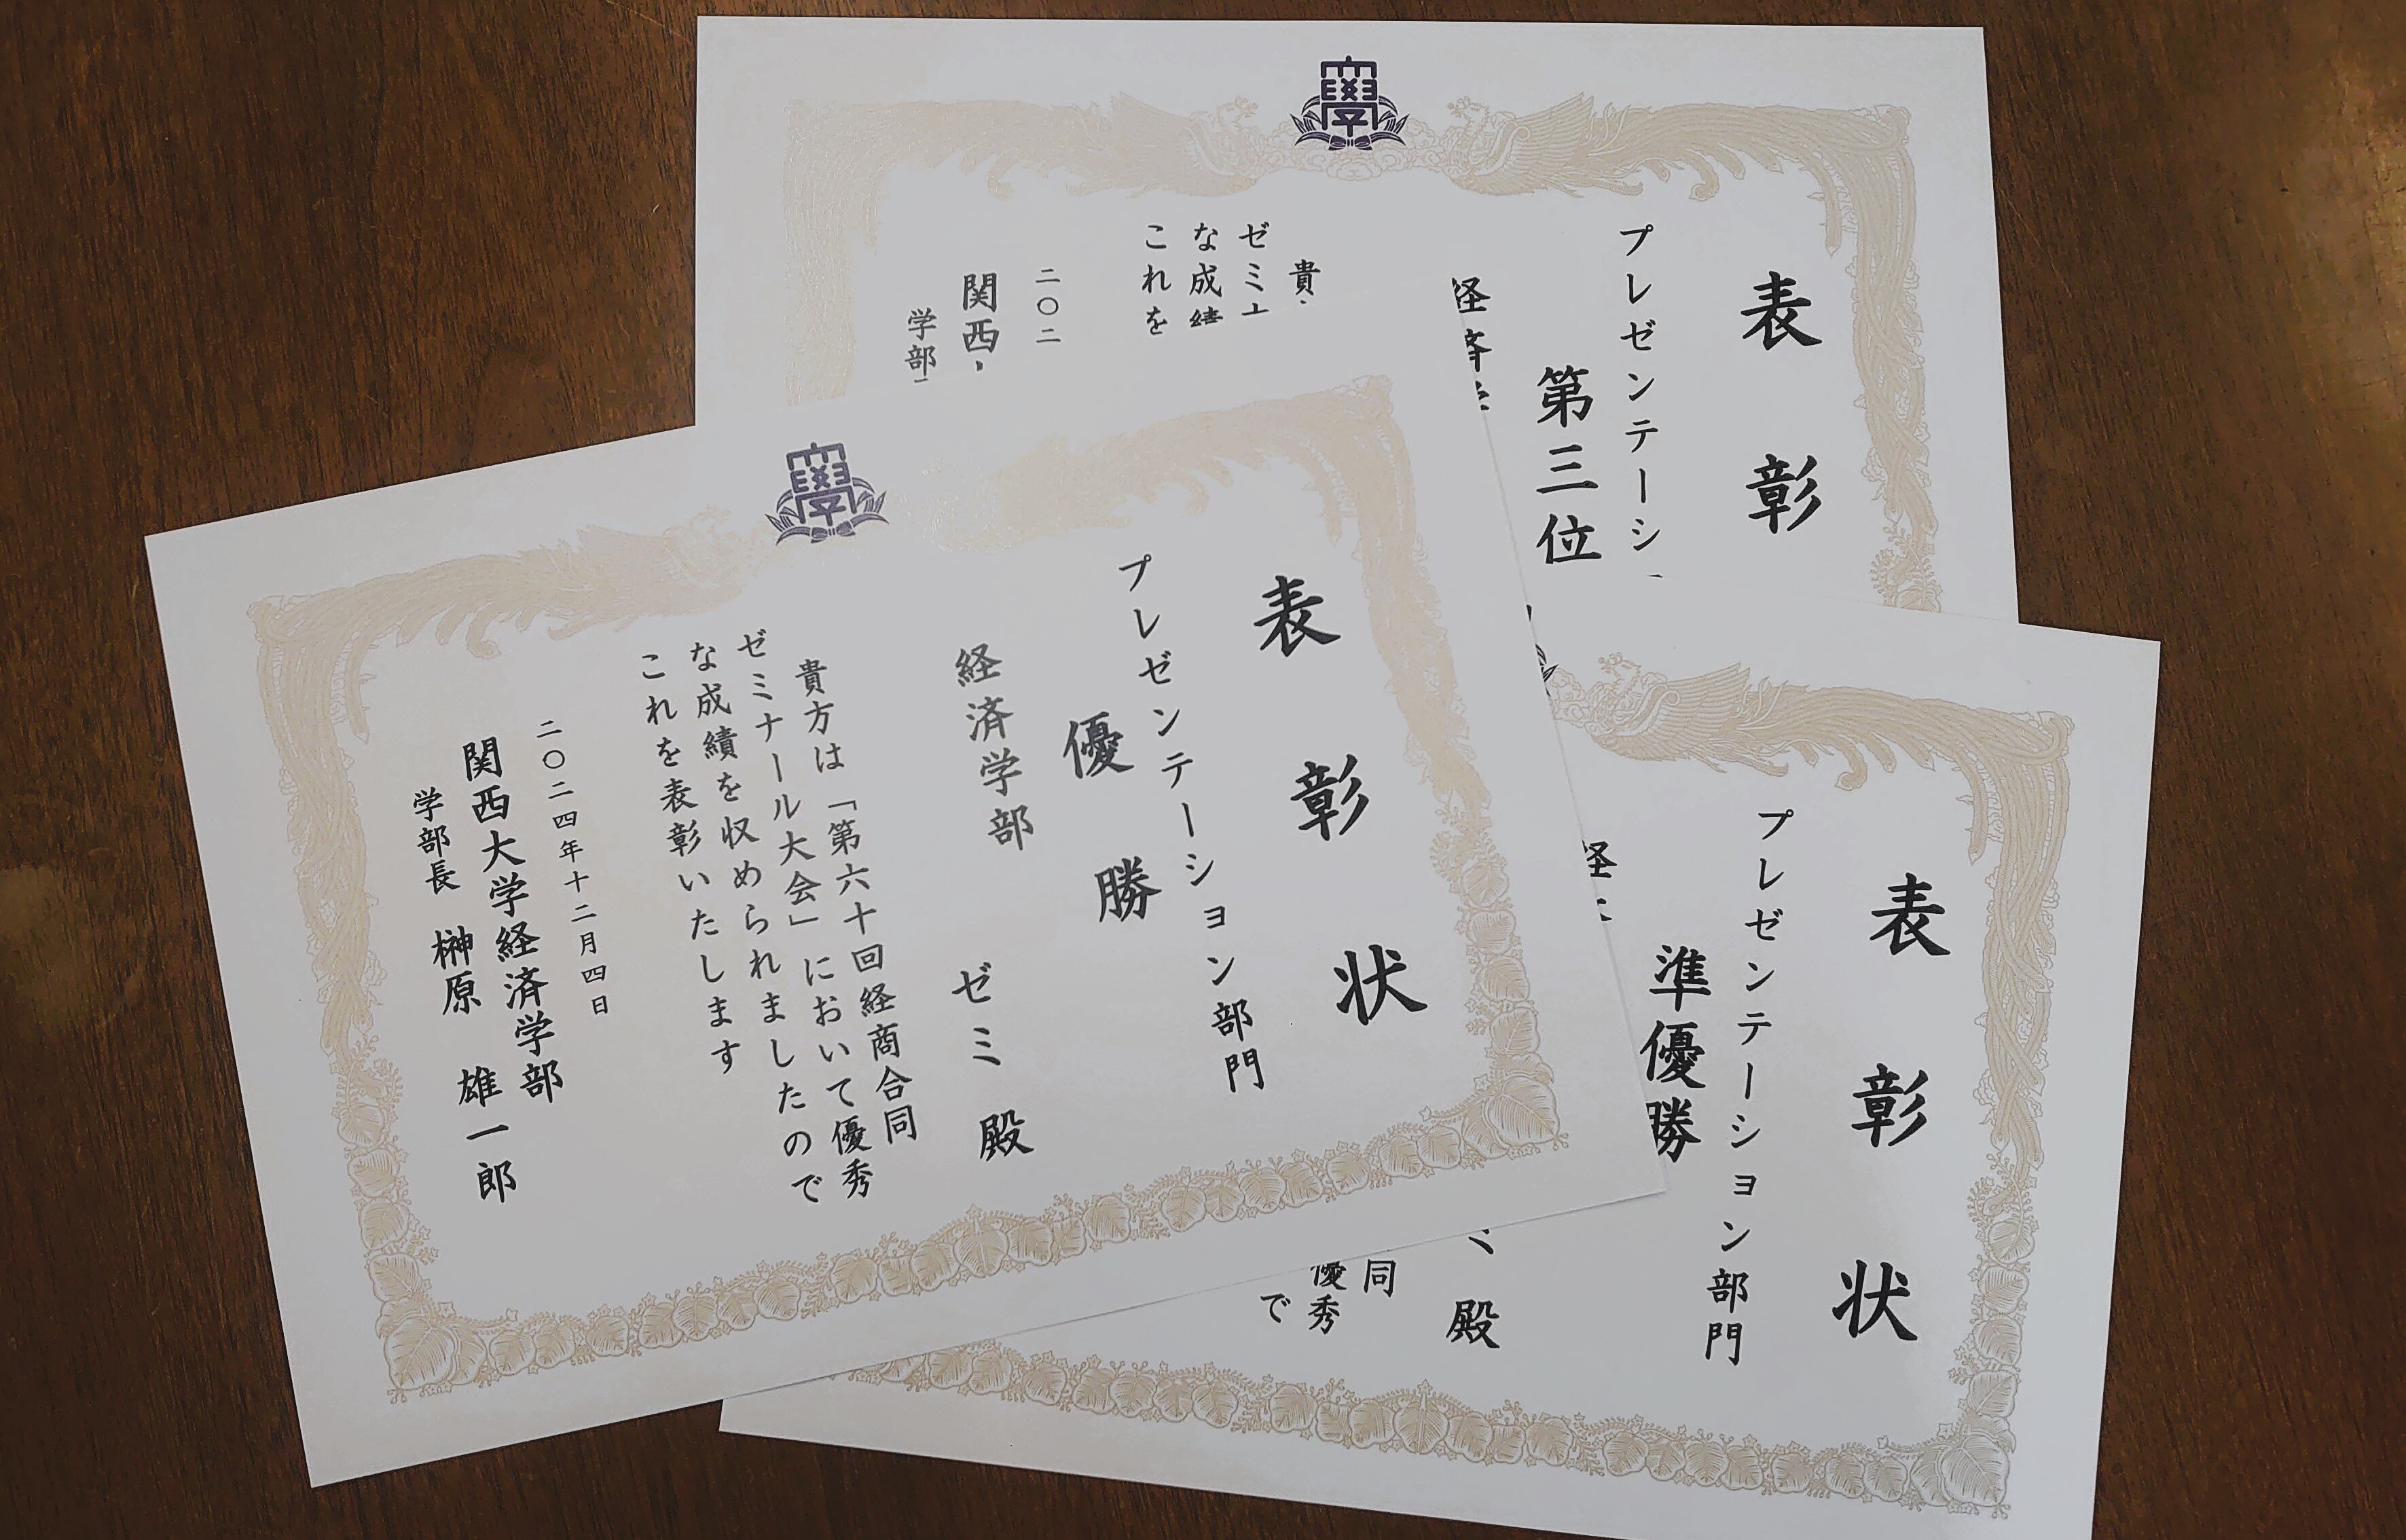 表彰状
プレゼンテーション部門
優勝
経済学部 ゼミ 殿
貴方は「第六十回経商合同
ゼミナール大会」において優秀
な成績を収められましたので
これを表彰いたします
二〇二四年十二月四日
関西大学経済学部
学部長 榊原 雄一郎
表彰
プレゼンテーシ
第三位
経済
貴
ゼミ
な成績
これを
二〇二
関西
学部
表彰状
プレゼンテーション部門
準優勝
経
ミ 殿
同
優秀
で